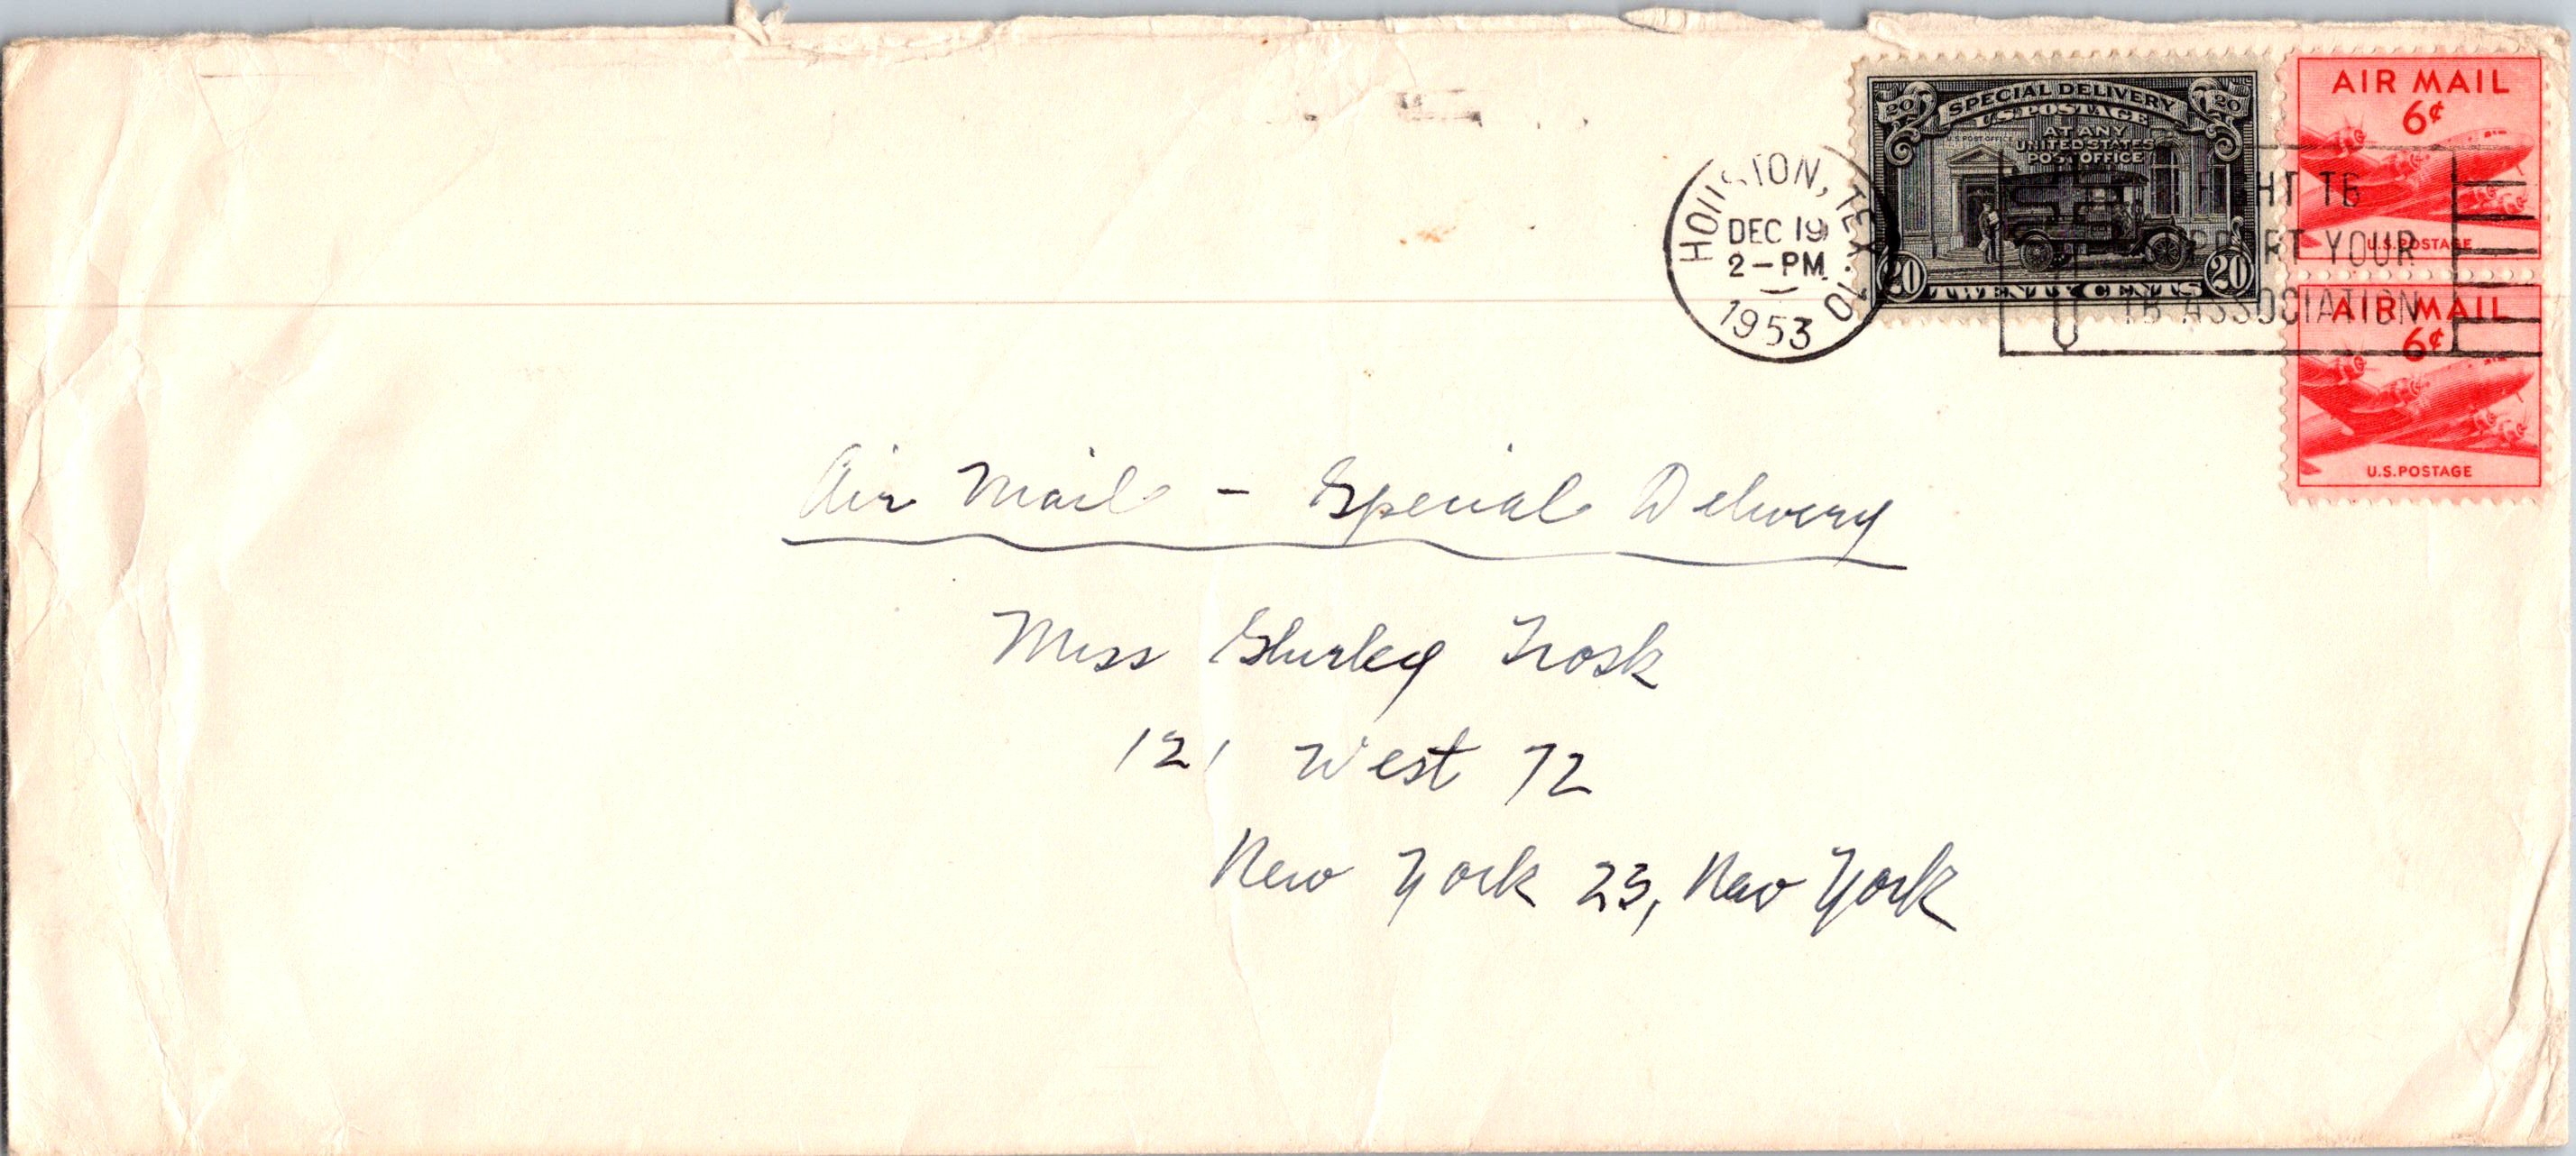 20 SPECIAL DELIVERY 20
U.S. POSTAGE
AT ANY
UNITED STATES
POST OFFICE
20 TWENTY CENTS 20
AIR MAIL
6¢
U.S. POSTAGE
AIR MAIL
6¢
U.S. POSTAGE
HOUSTON, TEX. 10
DEC 19
2-PM
1953
FIGHT TB
SUPPORT YOUR
TB ASSOCIATION
Air Mail - Special Delivery
Miss Shirley Trosk
121 West 72
New York 23, New York